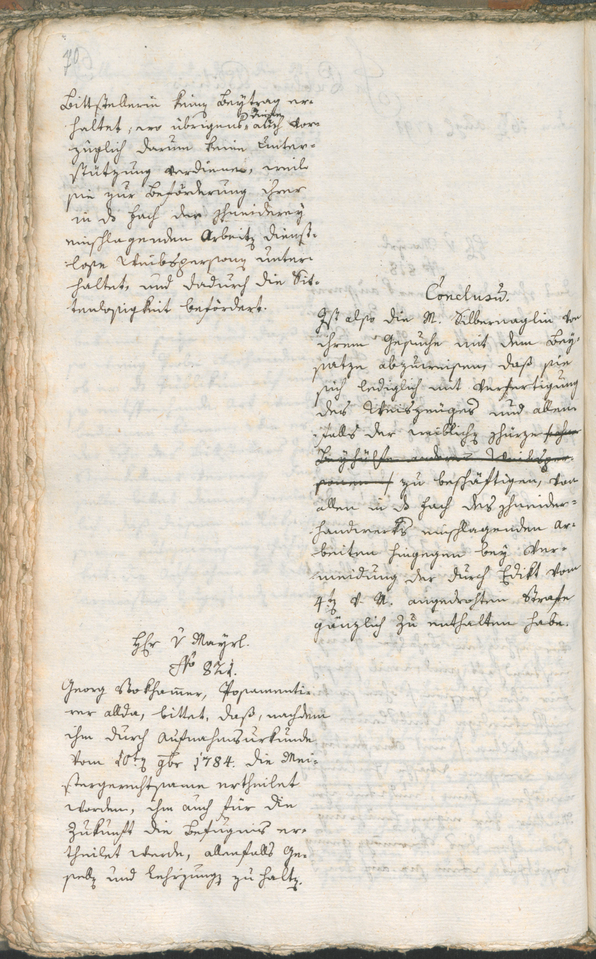 70
Bittstellerin keinen Beytrag er-
haltet, wo übrigens dieses auch vor-
züglich darum keine Unter-
stützung verdienen, weil
sie zur Beförderung ihrer
in das Fach der Schneiderey
einschlagenden Arbeiten dienst-
lose Weibspersonen unter-
haltet, und dadurch die Sit-
tenlosigkeit befördert.
Conclusum.
Ist also die N. Silbernaglin von
ihrem Gesuche mit dem Bey-
satze abzuweisen, daß sie
sich lediglich mit Verfertigung
des Weiszeuges und allen-
falls der weiblichen Schürze
Beyhülfe anderer Weibsper-
sonen zu beschäftigen, von
allen in das Fach des Schneider-
handwerks einschlagenden Ar-
beiten hingegen bey Ver-
meidung der durch Edikt vom
4ten d. M. angedrohten Strafe
gänzlich zu enthalten habe.
Hfr v Mayrl.
No 821.
Georg Stockhamer, Posamenti-
rer allda, bittet, daß, nachdem
ihm durch Aufnahmsurkunde
vom 10ten 9br 1784. die Mei-
stergerechtsame ertheilet
worden, ihm auch für die
Zukunft die Befugnis er-
theilet werde, allenfalls Ge-
sellen und Lehrjungen zu halten.